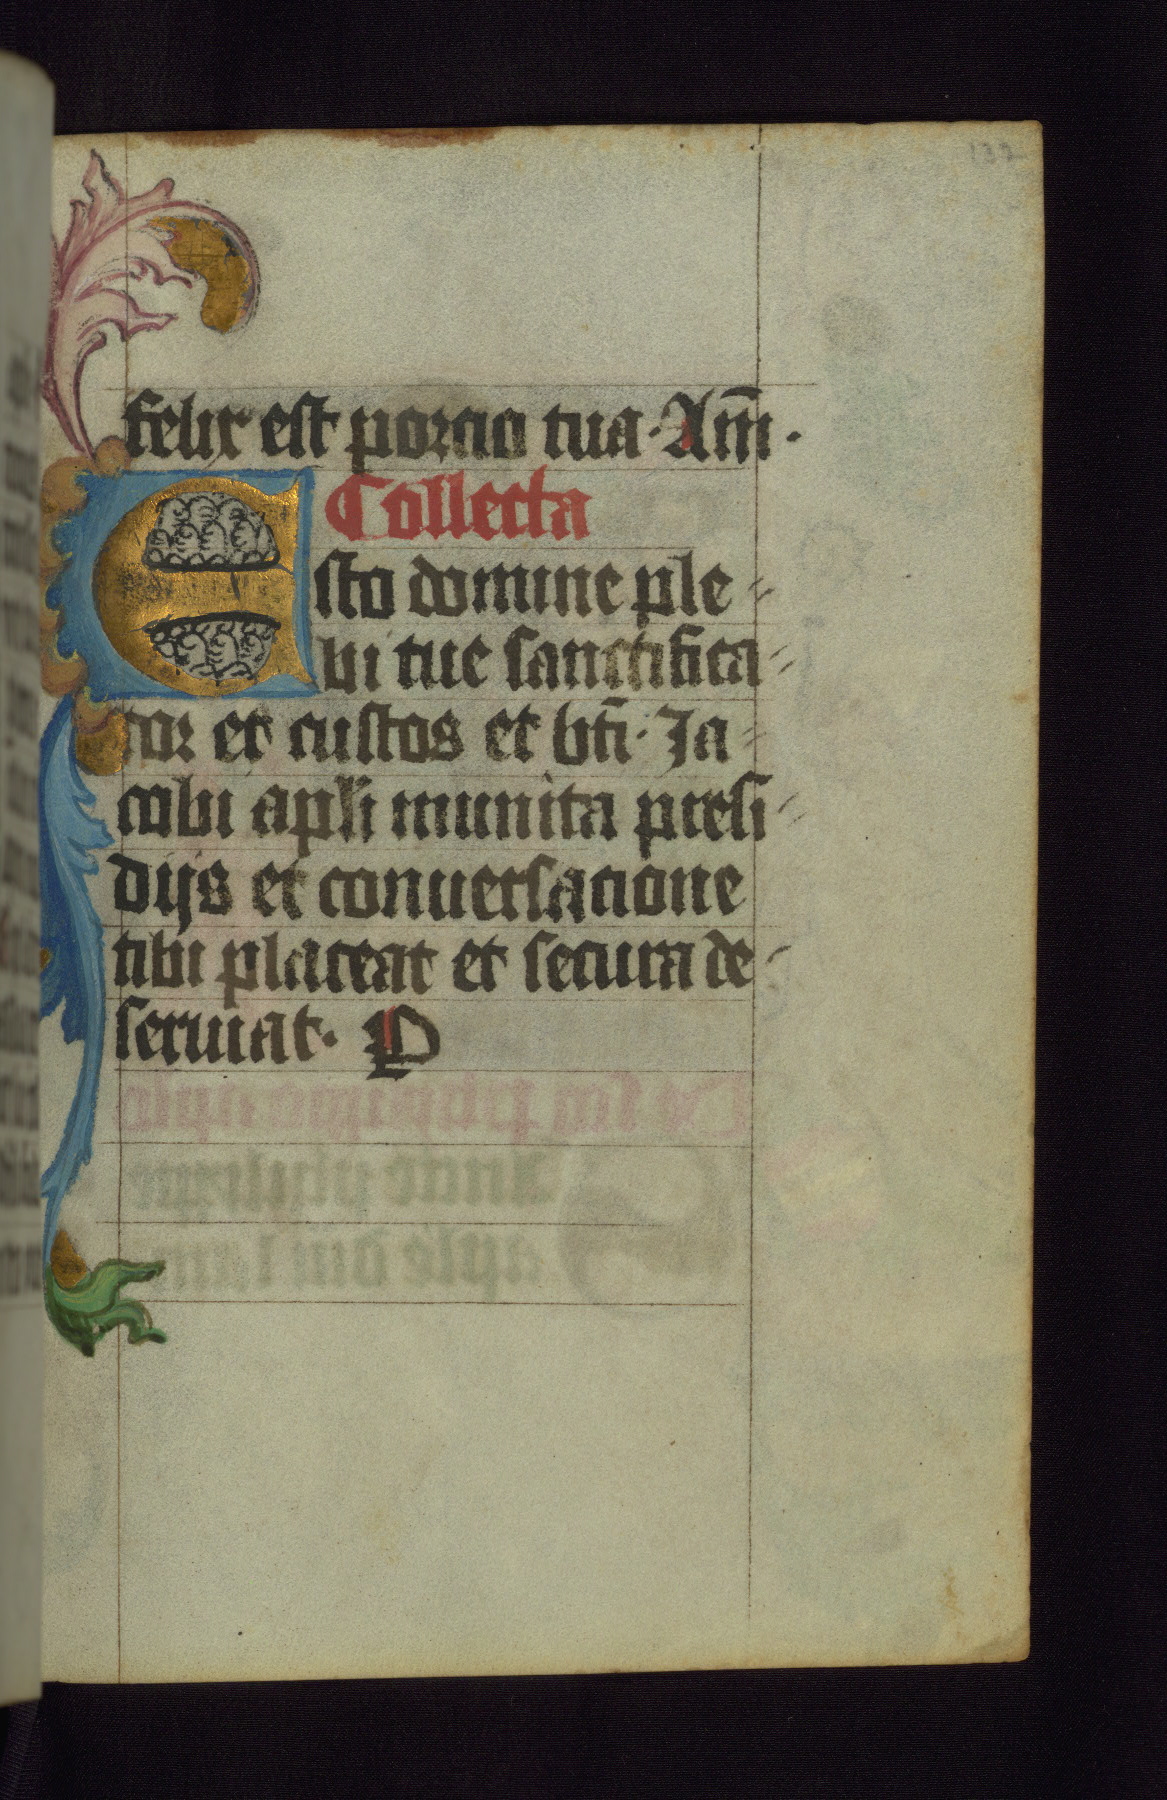 132
felix est porcio tua · Am̄ ·
Collecta
Esto domine ple
bi tue sanctifica
tor et custos et bt̄i · Ja
cobi apl̄i munita presi
dijs et conuersacione
tibi placeat et secura de
seruiat · P